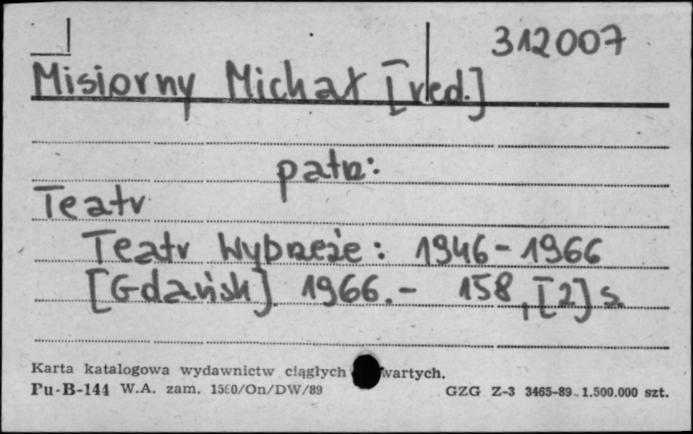 312007
Misiorny Michał [red.]
patrz:
Teatr
Teatr Wybrzeże: 1946-1966
[Gdańsk] 1966.- 158, [2] s.
Karta katalogowa wydawnictw ciągłych wartych.
Pu-B-144 W.A. zam. 1560/On/DW/89 GZG Z-3 3465-89 1.500.000 szt.